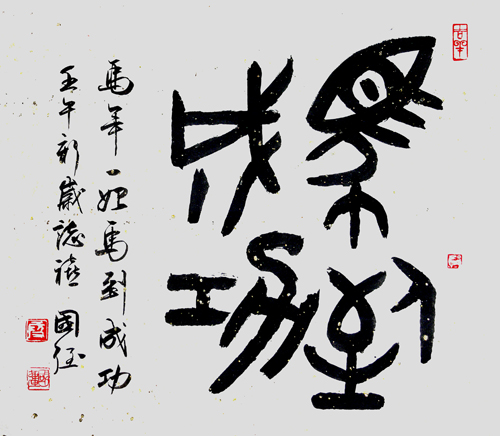 馬到
成功
馬年一始馬到成功
壬午新歲誌禧 國